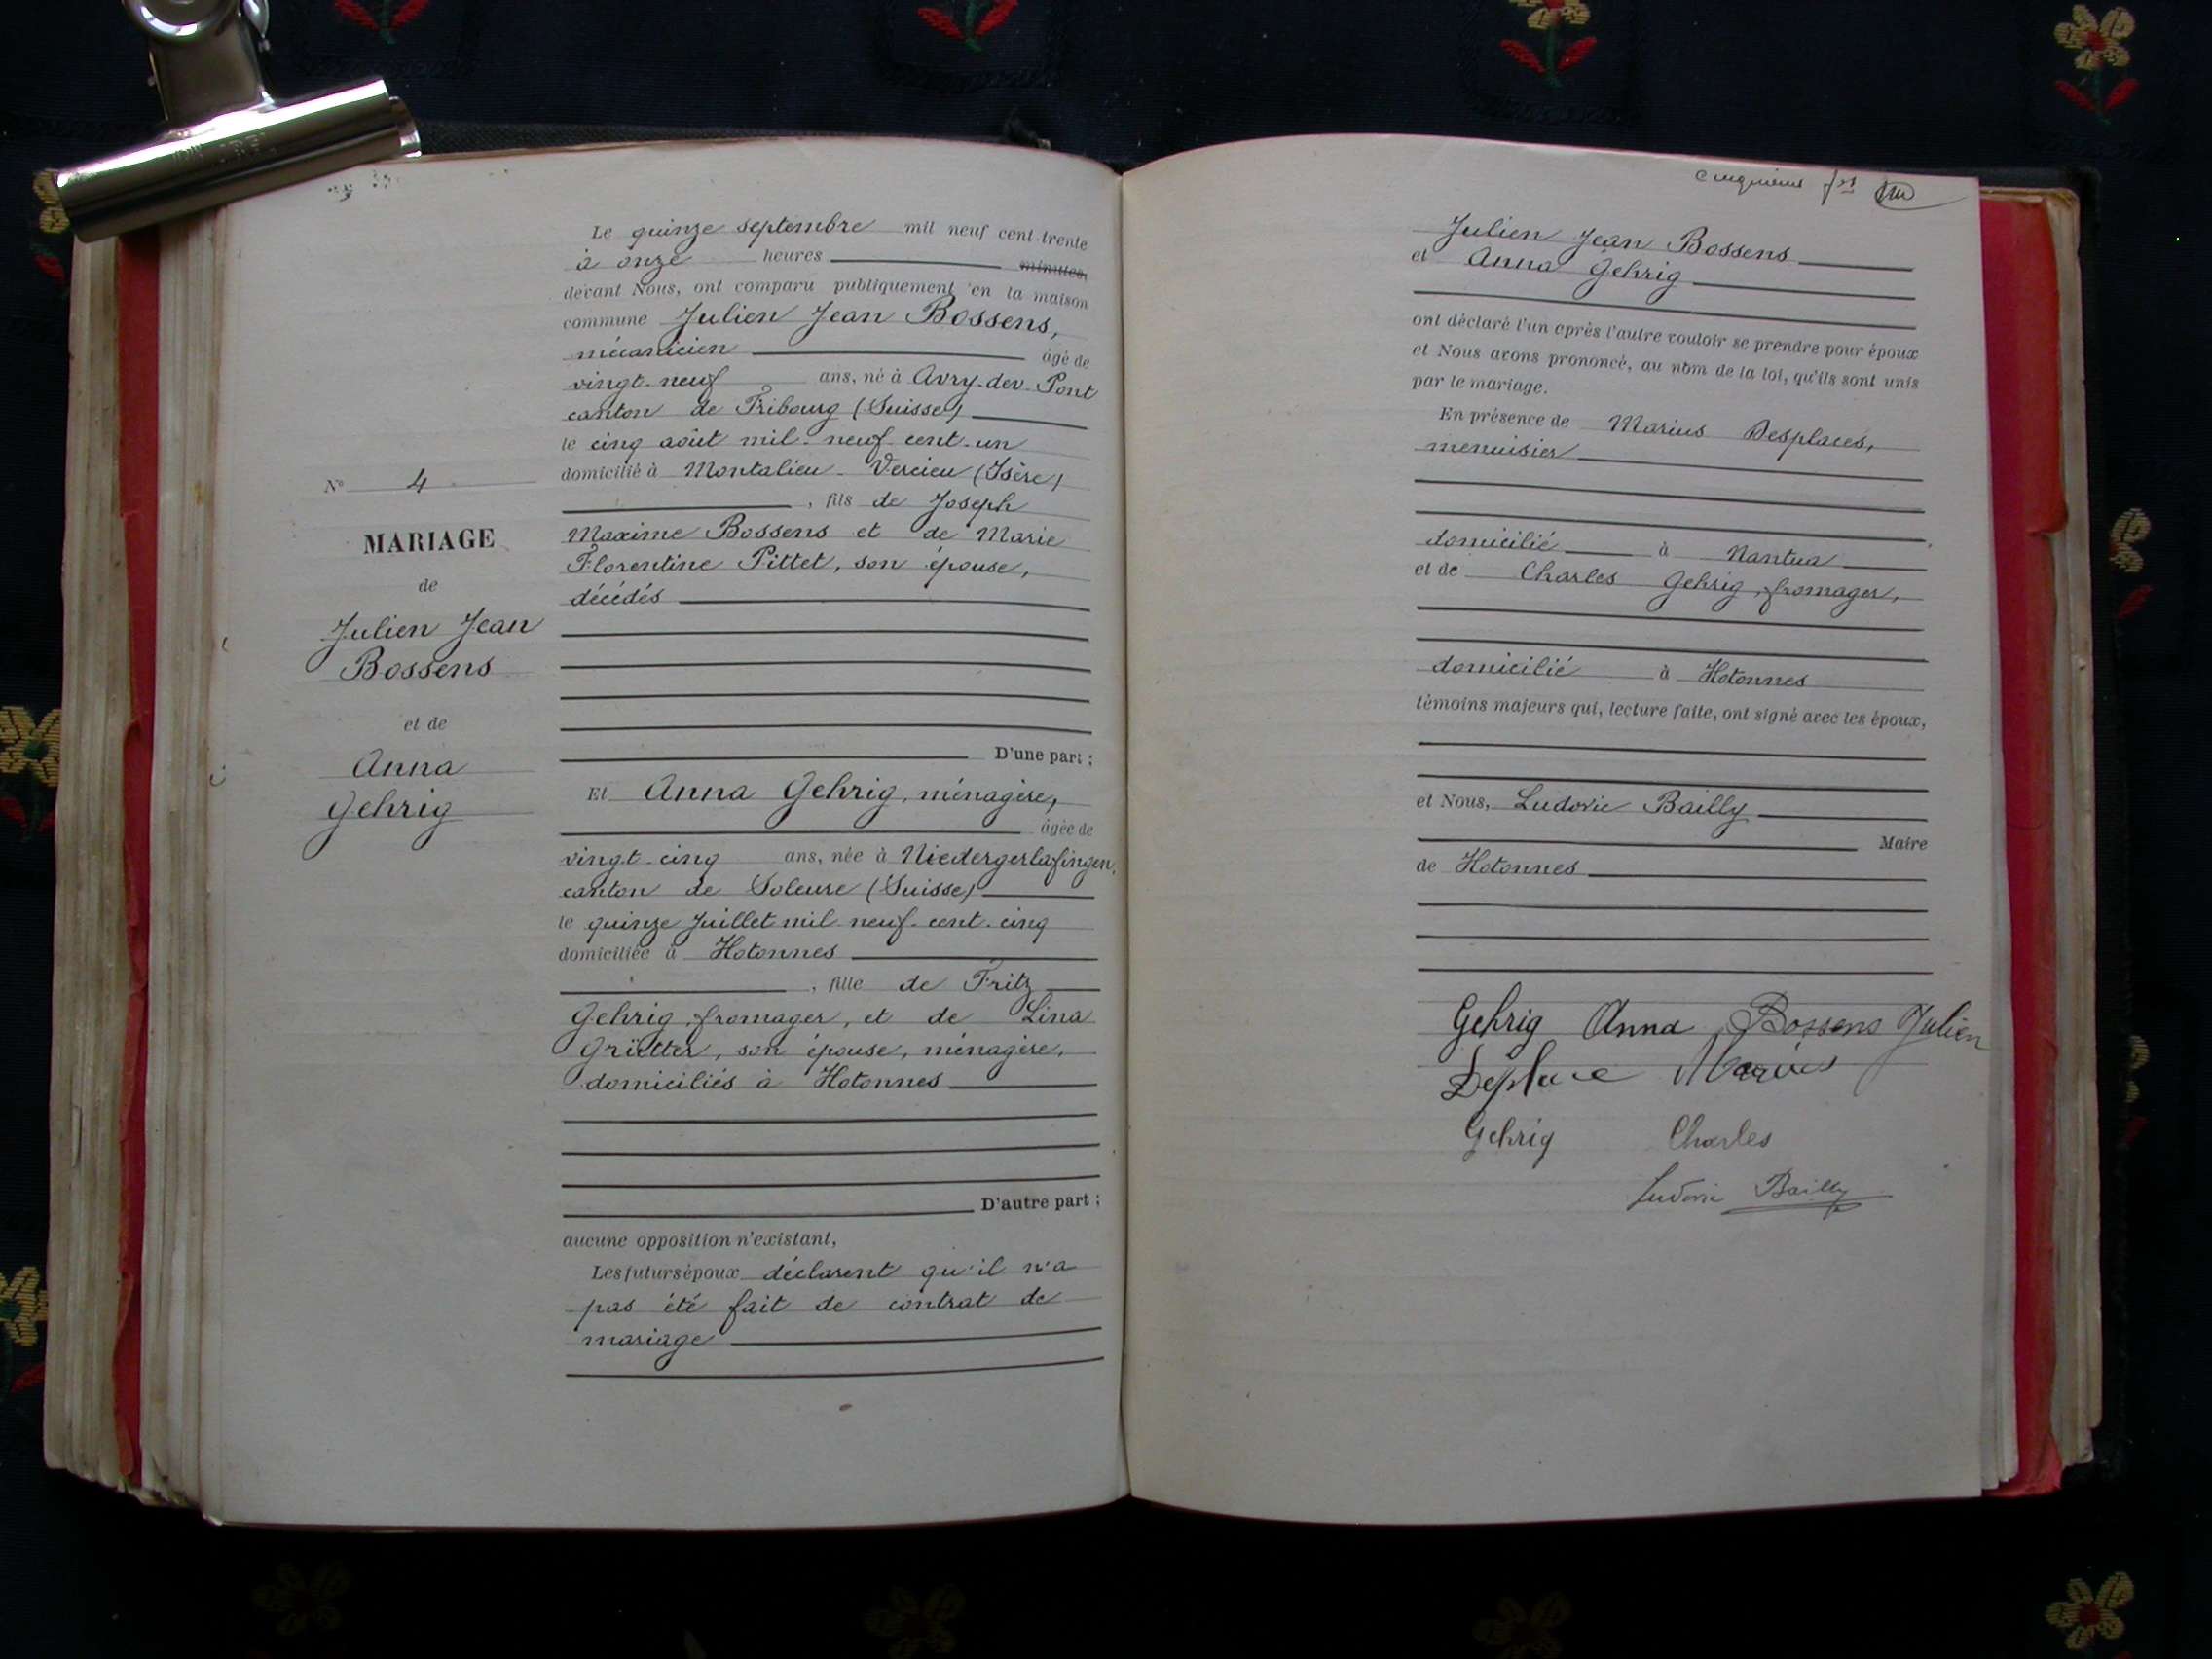 Le quinze septembre mil neuf cent trente
à onze heures minutes
devant Nous, ont comparu publiquement en la maison
commune Julien Jean Bossens,
mécanicien âgé de
vingt-neuf ans, né à Avry-dev-Pont
canton de Fribourg (Suisse)
le cinq août mil-neuf-cent-un
domicilié à Montalieu-Vercieu (Isère)
, fils de Joseph
Maxime Bossens et de Marie
Florentine Pittet, son épouse,
décédés
D'une part ;
Et Anna Gehrig, ménagère,
âgée de
vingt-cinq ans, née à Niedergerlafingen,
canton de Soleure (Suisse)
le quinze Juillet mil-neuf-cent-cinq
domiciliée à Hotonnes
, fille de Fritz
Gehrig, fromager, et de Lina
Grütter, son épouse, ménagère,
domiciliés à Hotonnes
D'autre part ;
aucune opposition n'existant,
Les futurs époux déclarent qu'il n'a
pas été fait de contrat de
mariage
N° 4
MARIAGE
de
Julien Jean
Bossens
et de
Anna
Gehrig
cinquième
Julien Jean Bossens
et Anna Gehrig
ont déclaré l'un après l'autre vouloir se prendre pour époux
et Nous avons prononcé, au nom de la loi, qu'ils sont unis
par le mariage.
En présence de Marius Desplaces,
menuisier
domicilié à Nantua
et de Charles Gehrig, fromager,
domicilié à Hotonnes
témoins majeurs qui, lecture faite, ont signé avec les époux,
et Nous, Ludovic Bailly
Maire
de Hotonnes
Gehrig Anna Bossens Julien
Deplace Marius
Gehrig Charles
Ludovic Bailly